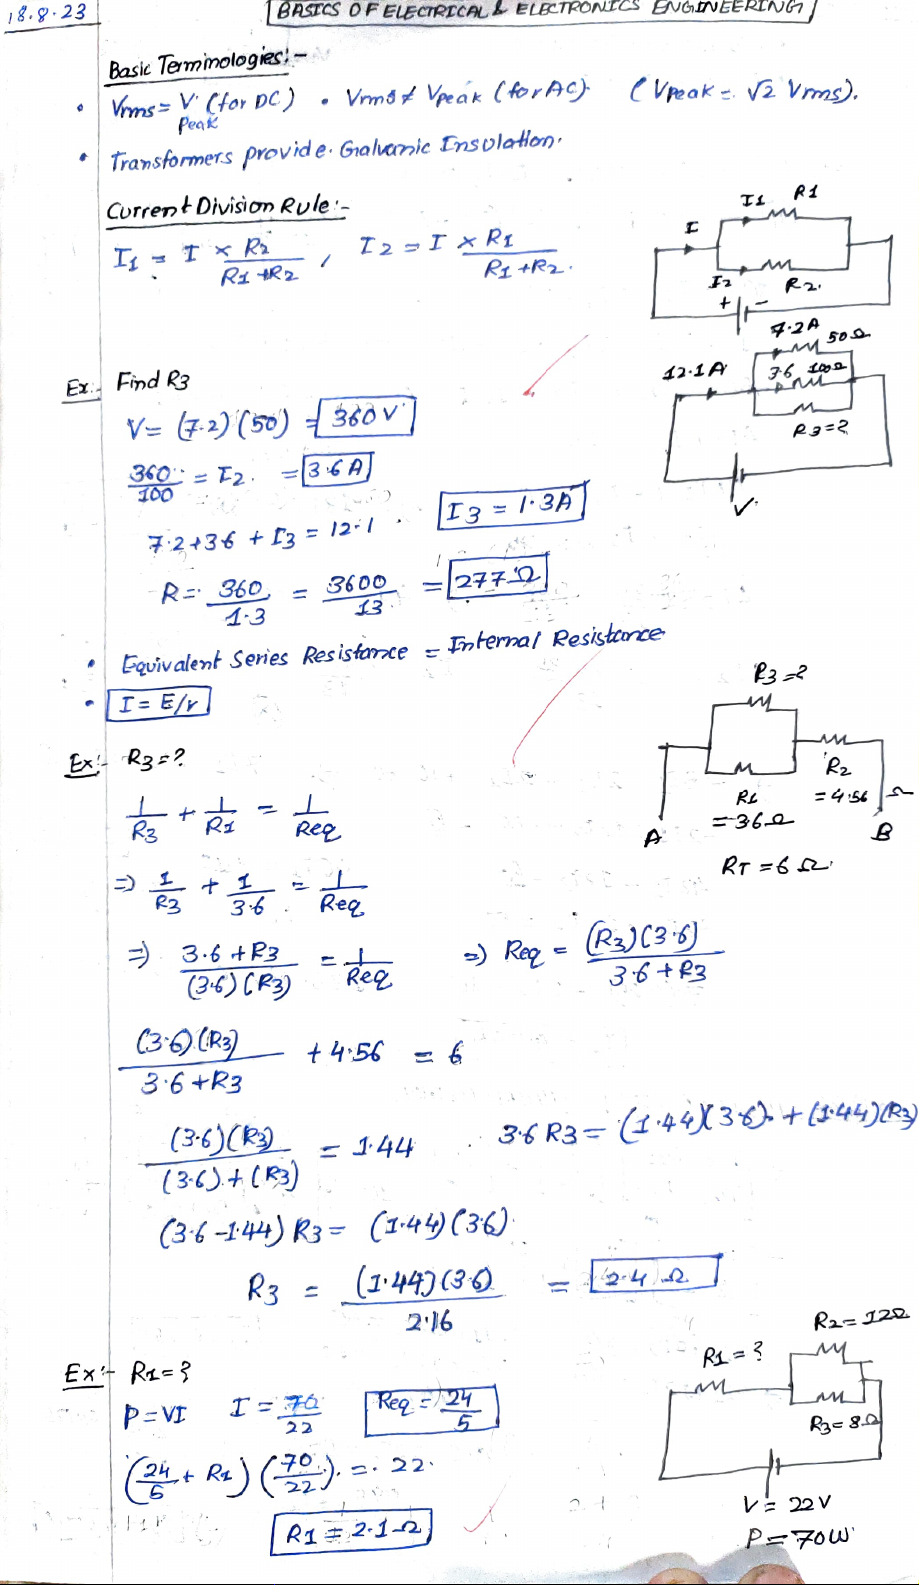 18.8.23
BASICS OF ELECTRICAL & ELECTRONICS ENGINEERING
Basic Terminologies:-
• Vrms = V Peak (for DC) • Vrms ≠ Vpeak (for AC) (Vpeak = √2 Vrms).
• Transformers provide Galvanic Insulation.
Current Division Rule:-
I1 = I × R2 / R1 + R2 , I2 = I × R1 / R1 + R2 .
I I1 R1
I2 R2.
+ -
Ex:- Find R3
V = (7.2)(50) = 360 V
360/100 = I2. = 3.6 A
7.2 + 3.6 + I3 = 12.1 . I3 = 1.3A
R = 360/1.3 = 3600/13 = 277 Ω
12.1 A 7.2A 50Ω
3.6 100Ω
R3 = ?
V.
• Equivalent Series Resistance = Internal Resistance
• I = E/r
Ex:- R3 = ?
1/R3 + 1/R1 = 1/Req
⇒ 1/R3 + 1/3.6 = 1/Req
⇒ 3.6 + R3 / (3.6)(R3) = 1/Req ⇒ Req = (R3)(3.6) / 3.6 + R3
(3.6)(R3) / 3.6 + R3 + 4.56 = 6
(3.6)(R3) / (3.6) + (R3) = 1.44 . 3.6 R3 = (1.44)(3.6) + (1.44)(R3)
(3.6 - 1.44) R3 = (1.44)(3.6)
R3 = (1.44)(3.6) / 2.16 = 2.4 Ω
R3 = ?
R2
= 4.56 Ω
R1
= 3.6 Ω
A B
RT = 6 Ω
Ex:- R1 = ?
P = VI I = 70/22 Req = 24/5
(24/5 + R1) (70/22) = 22
R1 = 2.1 Ω
R2 = 12Ω
R1 = ?
R3 = 8Ω
V = 22 V
P = 70W